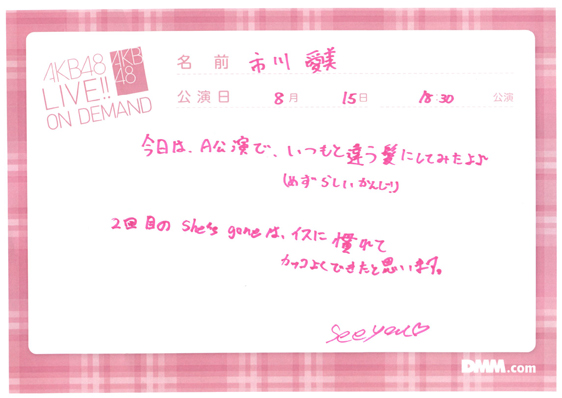 AKB48
LIVE!!
ON DEMAND
AKB
48
名前 市川 愛美
公演日 8月 15日 18:30 公演
今日は、A公演で、いつもと違う髪にしてみたよ♪
(めずらしいかんじ!)
2回目の She's goneは、イスに慣れて
カッコよくできたと思います。
see you♡
DMM.com